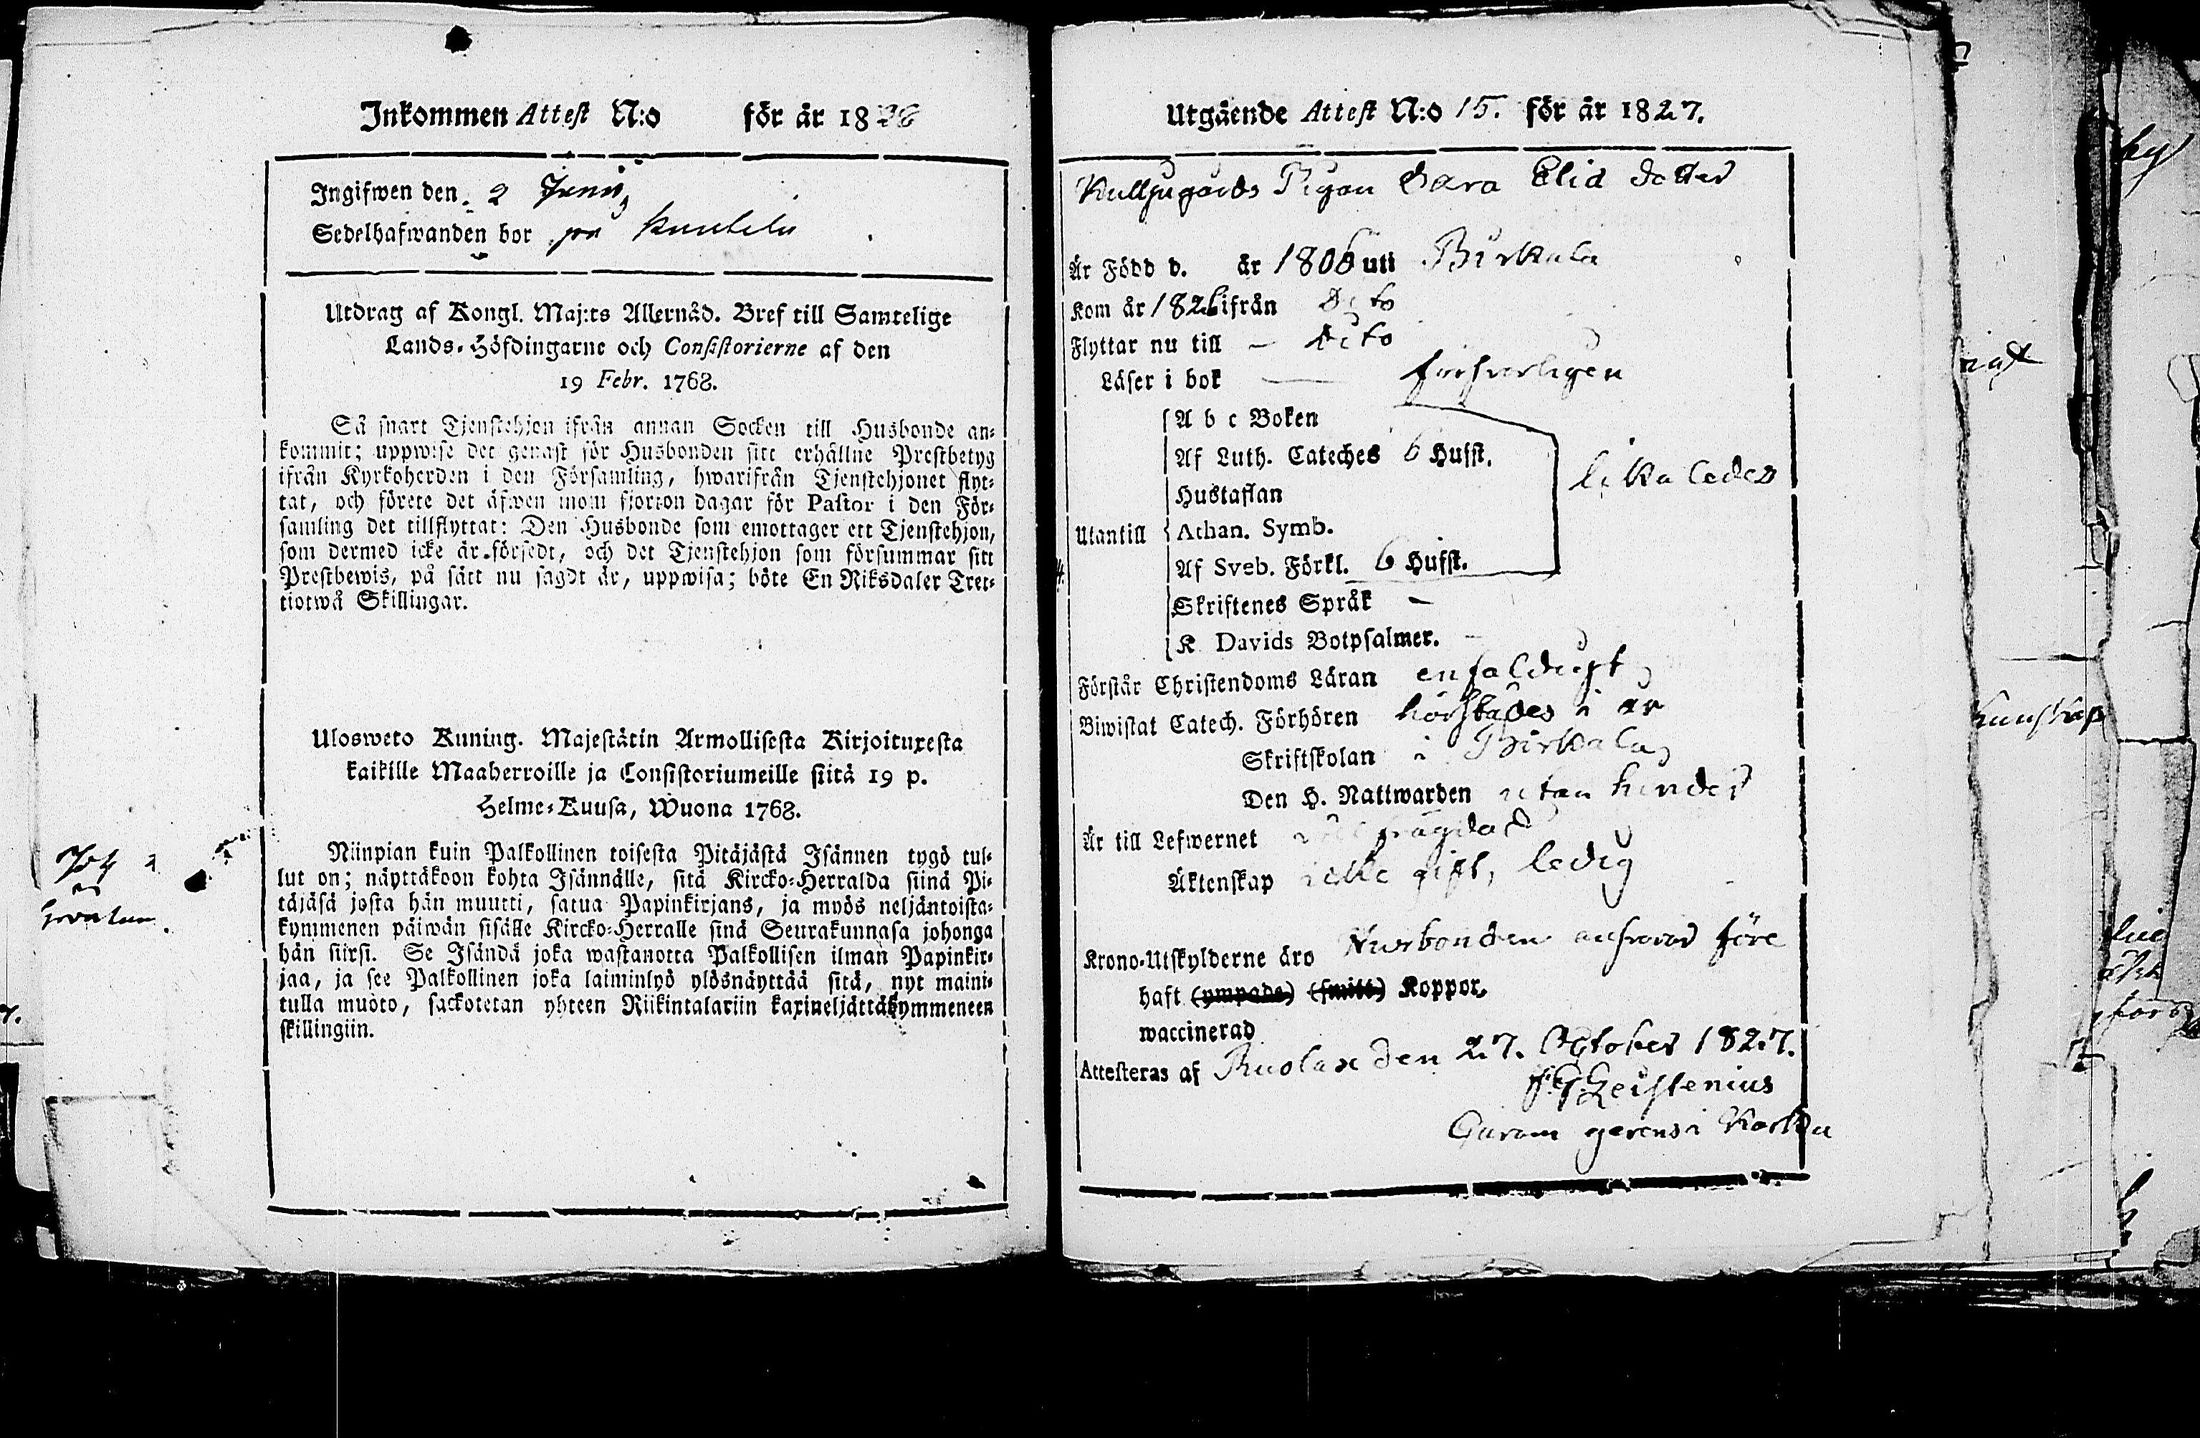 Inkommen Attest N:o för år 1828
Ingifwen den 2 Junii
Sedelhafwanden bor på
Utdrag af Kongl. Maj:ts Allernåd. Bref till Samtelige
Lands-Höfdingarne och Consistorierne af den
19 Febr. 1768.
Så snart Tjenstehjon ifrån annan Socken till Husbonde an-
kommit; uppwise det genast för Husbonden sitt erhållne Prestbetyg
ifrån Kyrkoherden i den Församling, hwarifrån Tjenstehjonet flyt-
tat, och förete det äfwen inom fjorton dagar för Pastor i den För-
samling det tillflyttat: Den Husbonde som emottager ett Tjenstehjon,
som dermed icke är försedt, och det Tjenstehjon som försummar sitt
Prestbewis, på sätt nu sagdt är, uppwisa; böte En Riksdaler Tret-
tiotwå Skillingar.
Ulosweto Kuning. Majestätin Armollisesta Kirjoituxesta
kaikille Maaherroille ja Consistoriumeille siitä 19 p.
Helme-Kuusa, Wuona 1768.
Niinpian kuin Palkollinen toisesta Pitäjästä Isännen tygö tul-
lut on; näyttäkoon kohta Isännälle, sitä Kircko-Herralda siinä Pi-
täjäsä josta hän muutti, satua Papinkirjans, ja myös neljäntoista-
kymmenen päiwän sisälle Kircko-Herralle sinä Seurakunnasa johonga
hän siirsi. Se Isändä joka wastanotta Palkollisen ilman Papinkir-
jaa, ja see Palkollinen joka laiminlyö ylösnäyttää sitä, nyt maini-
tulla muoto, sackotetan yhteen Riikintalariin kaxineljättäkymmeneen
skillingiin.
Utgående Attest N:o 15. för år 1827.
Kulljugårds Pigan Sara Elid dotter
Är Född d. år 1806 uti Birkala
Kom år 1826 ifrån dito
Flyttar nu till – dito
Läser i bok — försvarligen
A b c Boken
Af Luth. Cateches 6 Hufst.
Hustaflan
lika ledes
Utantill Athan. Symb.
Af Sveb. Förkl. 6 Hufst.
Skriftenes Språk –
K Davids Botpsalmer. –
Förstår Christendoms Läran enfaldigt,
Biwistat Catech. Förhören härstädes i år
Skriftskolan i Birkala,
Den H. Nattwarden utan hinder
Är till Lefwernet välfrägdad
Äktenskap icke gift, ledig
Krono-Utskylderne äro Husbonden ansvarar före
haft (ympade) (smitt) Koppor,
waccinerad
Attesteras af Kuolax den 27. October 1827.
Geistenius
gerens i Karkku